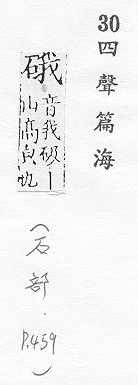 30 四聲篇海
硪
音我砐丨
山高皃也
（石部．P.459）